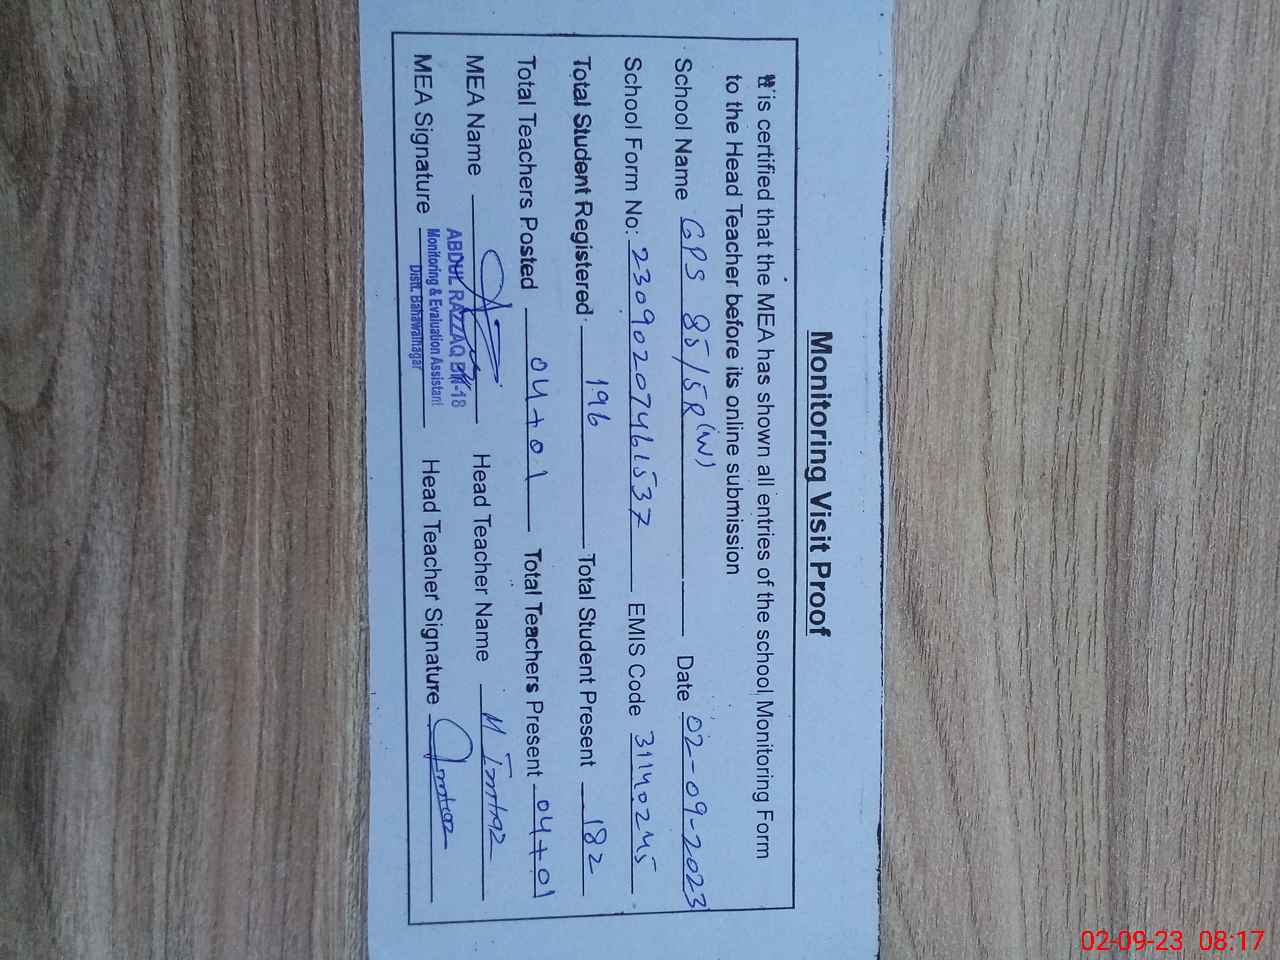 Monitoring Visit Proof
It is certified that the MEA has shown all entries of the school Monitoring Form
to the Head Teacher before its online submission
School Name GPS 85/5R (W) Date 02-09-2023
School Form No: 23090207461537 EMIS Code 31140245
Total Student Registered 196 Total Student Present 182
Total Teachers Posted 04+01 Total Teachers Present 04+01
MEA Name Head Teacher Name M Imtiaz
MEA Signature Head Teacher Signature Imtiaz
ABDUL RAZZAQ BW-18
Monitoring & Evaluation Assistant
Distt. Bahawalnagar
02-09-23 08:17